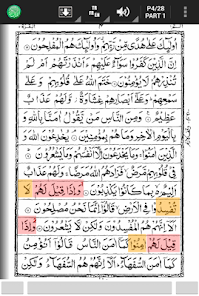 P4/28
PART 1
TR
EN
اُولٰٓئِكَ عَلٰى هُدًى مِّنْ رَّبِّهِمْ وَاُولٰٓئِكَ هُمُ الْمُفْلِحُوْنَ
اِنَّ الَّذِيْنَ كَفَرُوْا سَوَآءٌ عَلَيْهِمْ ءَاَنْذَرْتَهُمْ اَمْ لَمْ
تُنْذِرْهُمْ لَا يُؤْمِنُوْنَ خَتَمَ اللّٰهُ عَلٰى قُلُوْبِهِمْ وَعَلٰى
سَمْعِهِمْ وَعَلٰٓى اَبْصَارِهِمْ غِشَاوَةٌ وَّلَهُمْ عَذَابٌ
عَظِيْمٌ وَمِنَ النَّاسِ مَنْ يَّقُوْلُ اٰمَنَّا بِاللّٰهِ وَ
بِالْيَوْمِ الْاٰخِرِ وَمَا هُمْ بِمُؤْمِنِيْنَ يُخٰدِعُوْنَ اللّٰهَ وَ
الَّذِيْنَ اٰمَنُوْا وَمَا يَخْدَعُوْنَ اِلَّآ اَنْفُسَهُمْ وَمَا يَشْعُرُوْنَ
فِيْ قُلُوْبِهِمْ مَّرَضٌ فَزَادَهُمُ اللّٰهُ مَرَضًا وَلَهُمْ عَذَابٌ
اَلِيْمٌ بِمَا كَانُوْا يَكْذِبُوْنَ وَاِذَا قِيْلَ لَهُمْ لَا
تُفْسِدُوْا فِي الْاَرْضِ قَالُوْٓا اِنَّمَا نَحْنُ مُصْلِحُوْنَ
اَلَآ اِنَّهُمْ هُمُ الْمُفْسِدُوْنَ وَلٰكِنْ لَّا يَشْعُرُوْنَ وَاِذَا
قِيْلَ لَهُمْ اٰمِنُوْا كَمَآ اٰمَنَ النَّاسُ قَالُوْٓا اَنُؤْمِنُ
كَمَآ اٰمَنَ السُّفَهَآءُ اَلَآ اِنَّهُمْ هُمُ السُّفَهَآءُ